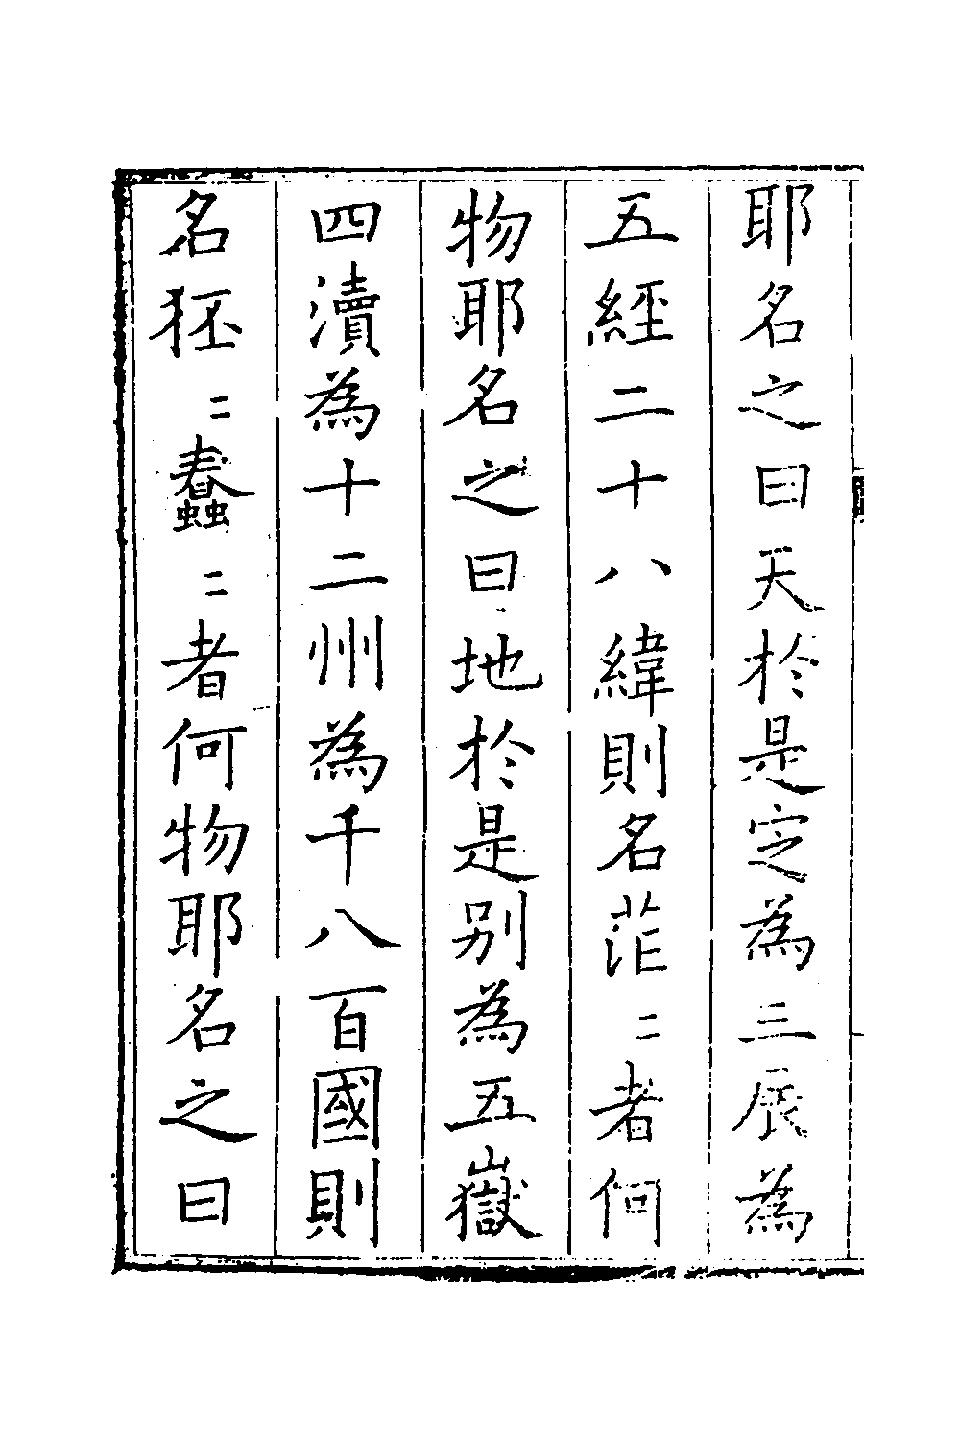 耶名之曰天於是定為三辰為
五經二十八緯則名茫〻者何
物耶名之曰地於是别為五嶽
四瀆為十二州為千八百國則
名狉〻蠢〻者何物耶名之曰